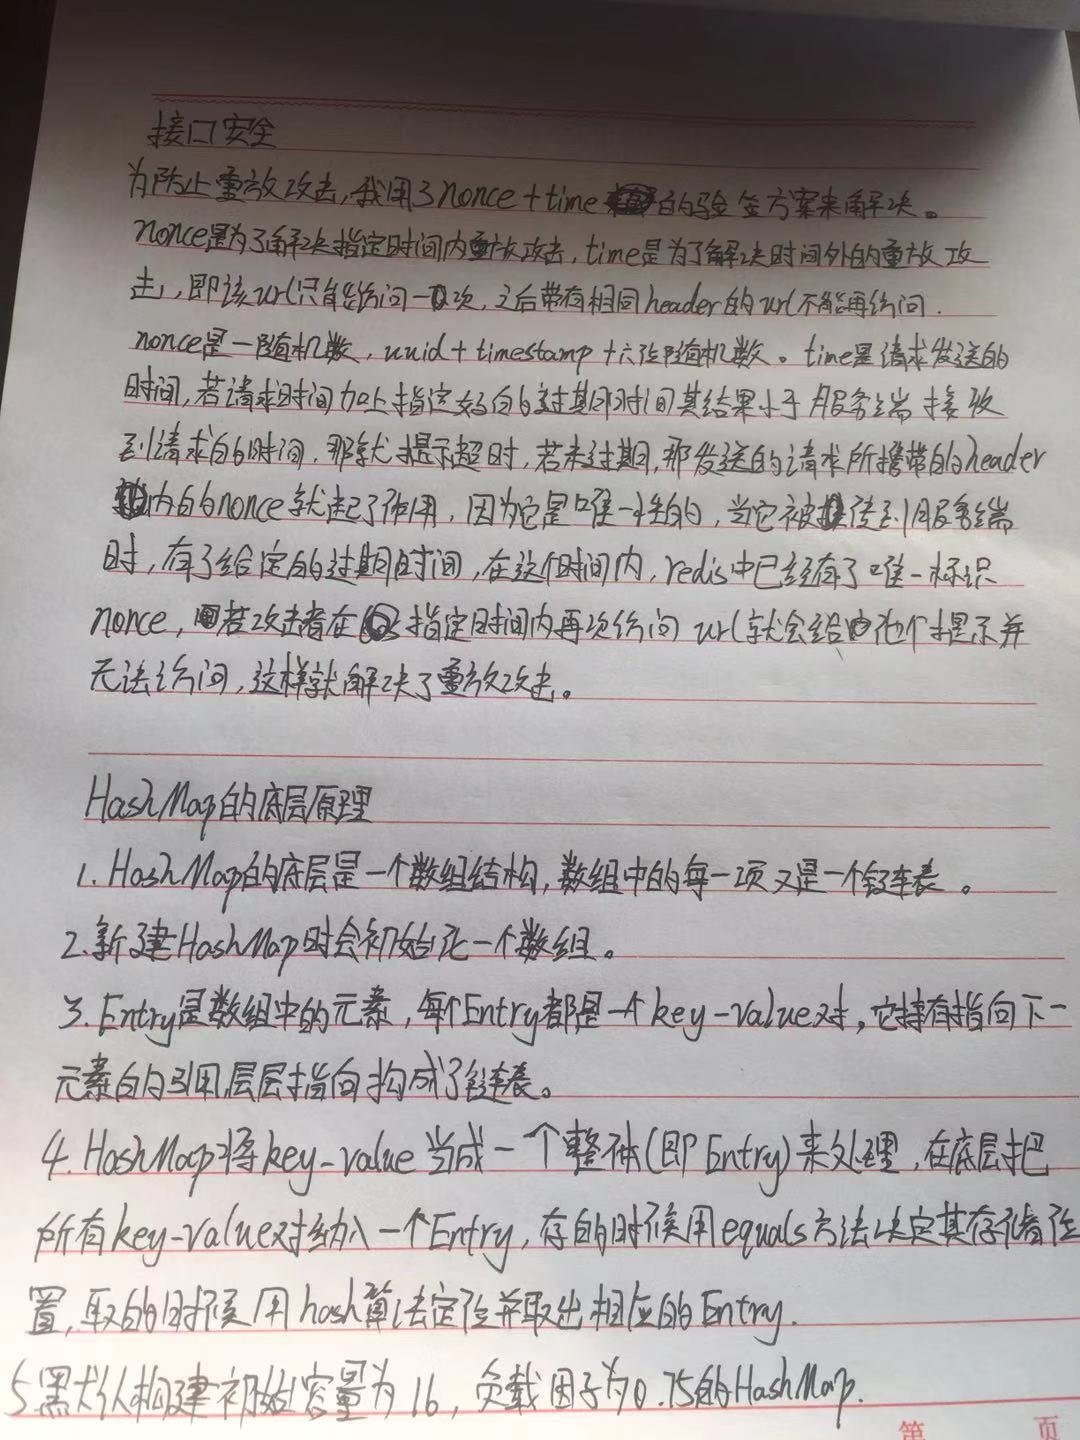 接口安全
为防止重放攻击,我用了nonce+time的验签方案来解决。
nonce是为了解决指定时间内重放攻击,time是为了解决时间外的重放攻
击,即该url只能访问一次,之后带有相同header的url不能再访问.
nonce是一随机数,uuid+timestamp+六位随机数。time是请求发送的
时间,若请求时间加上指定好的过期时间其结果小于服务端接收
到请求的时间,那就提示超时,若未过期,那发送的请求所携带的header
内的nonce就起了作用,因为它是唯一性的,当它被传到服务端
时,存了给定的过期时间,在这个时间内,redis中已经有了唯一标识
nonce,若攻击者在指定时间内再次访问url就会给他个提示并
无法访问,这样就解决了重放攻击。
HashMap的底层原理
1.HashMap的底层是一个数组结构,数组中的每一项又是一个链表。
2.新建HashMap时会初始化一个数组。
3.Entry是数组中的元素,每个Entry都是一个key-value对,它持有指向下一
元素的引用,层层指向构成了链表。
4.HashMap将key-value当成一个整体(即Entry)来处理,在底层把
所有key-value对纳入一个Entry,存的时候用equals方法决定其存储位
置,取的时候用hash算法定位并取出相应的Entry.
5默认构建初始容量为16,负载因子为0.75的HashMap.
第 页